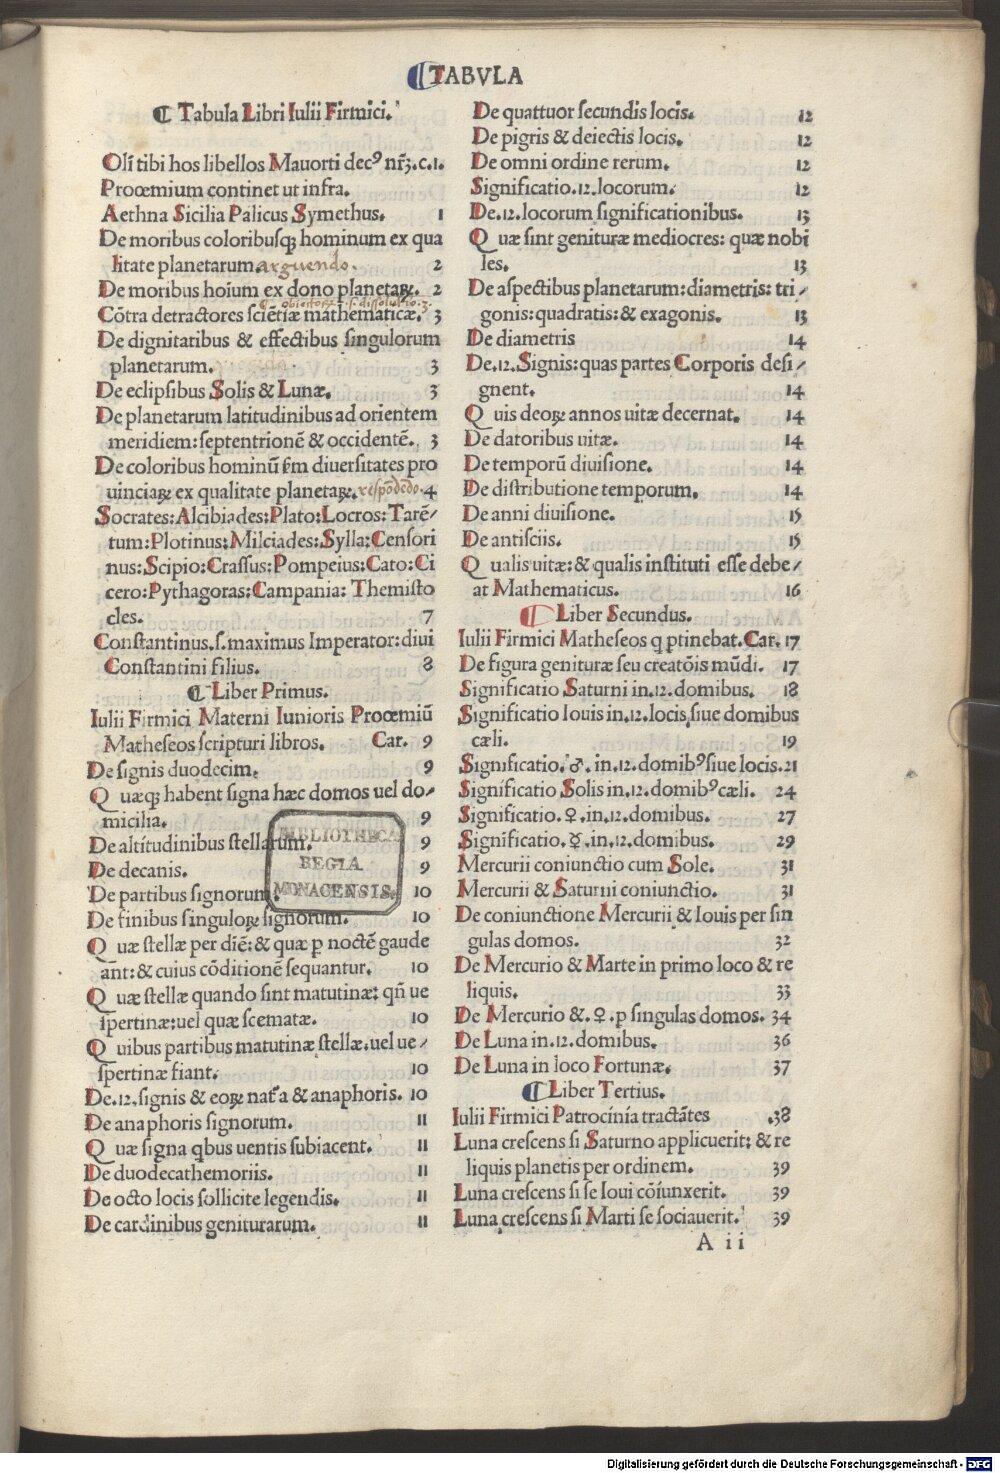 TABVLA
Tabula Libri Iulii Firmici.
Oli tibi hos libellos Mauorti decꝰ nr̄ꝫ.c.1.
Proœmium continet ut infra.
Aethna Sicilia Palicus Symethus. 1
De moribus coloribusqꝫ hominum ex qua
litate planetarum. arguendo. 2
De moribus hoīum ex dono planetaꝝ. 2
Cōtra detractores sciētiæ mathematicæ. 3
De dignitatibus & effectibus singulorum
planetarum. 3
De eclipsibus Solis & Lunæ. 3
De planetarum latitudinibus ad orientem
meridiem: septentrionē & occidentē. 3
De coloribus hominū ſm diuersitates pro
uinciaꝝ ex qualitate planetaꝝ. respōdēdo. 4
Socrates: Alcibiades: Plato: Locros: Tarē/
tum: Plotinus: Milciades: Sylla: Censori
nus: Scipio: Crassus: Pompeius: Cato: Ci
cero: Pythagoras: Campania: Themisto
cles. 7
Constantinus.s.maximus Imperator: diui
Constantini filius. 8
Liber Primus.
Iulii Firmici Materni Iunioris Proœmiū
Matheseos scripturi libros. Car. 9
De signis duodecim. 9
Q uæqꝫ habent signa hæc domos uel do/
micilia. 9
De altitudinibus stellarum. 9
De decanis. 9
De partibus signorum. 10
De finibus singuloꝝ signorum. 10
Q uæ stellæ per diē: & quæ p noctē gaude
ant: & cuius cōditionē sequantur. 10
Q uæ stellæ quando sint matutinæ: qn̄ ue
spertinæ: uel quæ scematæ. 10
Q uibus partibus matutinæ stellæ. uel ue/
spertinæ fiant. 10
De.12.signis & eoꝝ nat̄a & anaphoris. 10
De anaphoris signorum. 11
Q uæ signa qbus uentis subiacent. 11
De duodecathemoriis. 11
De octo locis sollicite legendis. 11
De cardinibus geniturarum. 11
BIBLIOTHECA
REGIA
MONACENSIS.
De quattuor secundis locis. 12
De pigris & deiectis locis. 12
De omni ordine rerum. 12
Significatio.12.locorum. 12
De.12.locorum significationibus. 13
Q uæ sint genituræ mediocres: quæ nobi
les. 13
De aspectibus planetarum: diametris: tri/
gonis: quadratis: & exagonis. 13
De diametris 14
De.12.Signis: quas partes Corporis desi/
gnent. 14
Q uis deoꝝ annos uitæ decernat. 14
De datoribus uitæ. 14
De temporū diuisione. 14
De distributione temporum. 14
De anni diuisione. 15
De antisciis. 15
Q ualis uitæ: & qualis instituti esse debe/
at Mathematicus. 16
Liber Secundus.
Iulii Firmici Matheseos q ptinebat. Car. 17
De figura genituræ seu creatōis mūdi. 17
Significatio Saturni in.12.domibus. 18
Significatio Iouis in.12.locis siue domibus
cæli. 19
Significatio.♂.in.12.domibꝰ siue locis. 21
Significatio Solis in.12.domibꝰ cæli. 24
Significatio.♀.in.12.domibus. 27
Significatio.☿.in.12.domibus. 29
Mercurii coniunctio cum Sole. 31
Mercurii & Saturni coniunctio. 31
De coniunctione Mercurii & Iouis per sin
gulas domos. 32
De Mercurio & Marte in primo loco & re
liquis. 33
De Mercurio &.♀.p singulas domos. 34
De Luna in.12.domibus. 36
De Luna in loco Fortunæ. 37
Liber Tertius.
Iulii Firmici Patrocinia tractātes .38
Luna crescens si Saturno applicuerit: & re
liquis planetis per ordinem. 39
Luna crescens si se Ioui cōiunxerit. 39
Luna crescens si Marti se sociauerit. 39
A ii
Digitalisierung gefördert durch die Deutsche Forschungsgemeinschaft - DFG